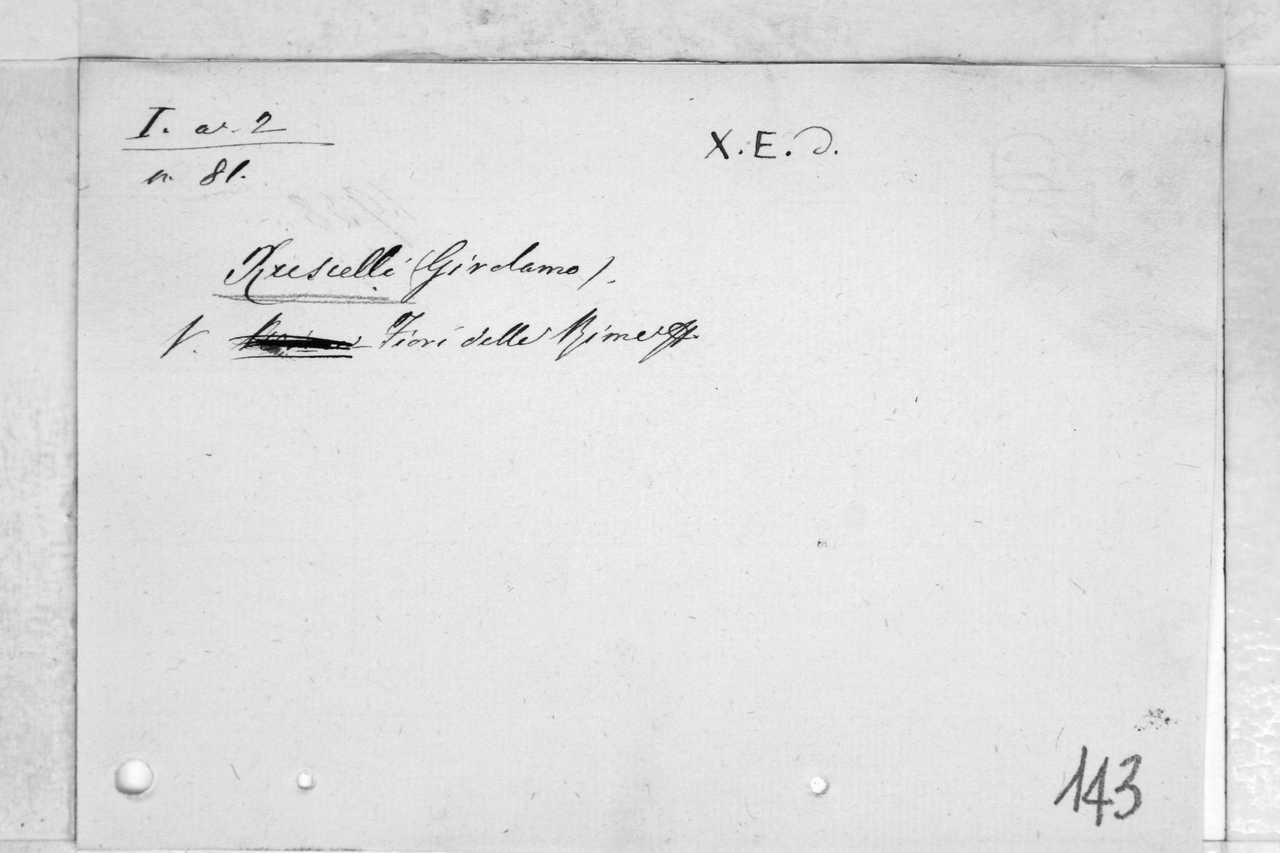 I. ar. 2
n. 81.
X.E.d.
Ruscelli (Girolamo).
V. Fiori delle Rime
143